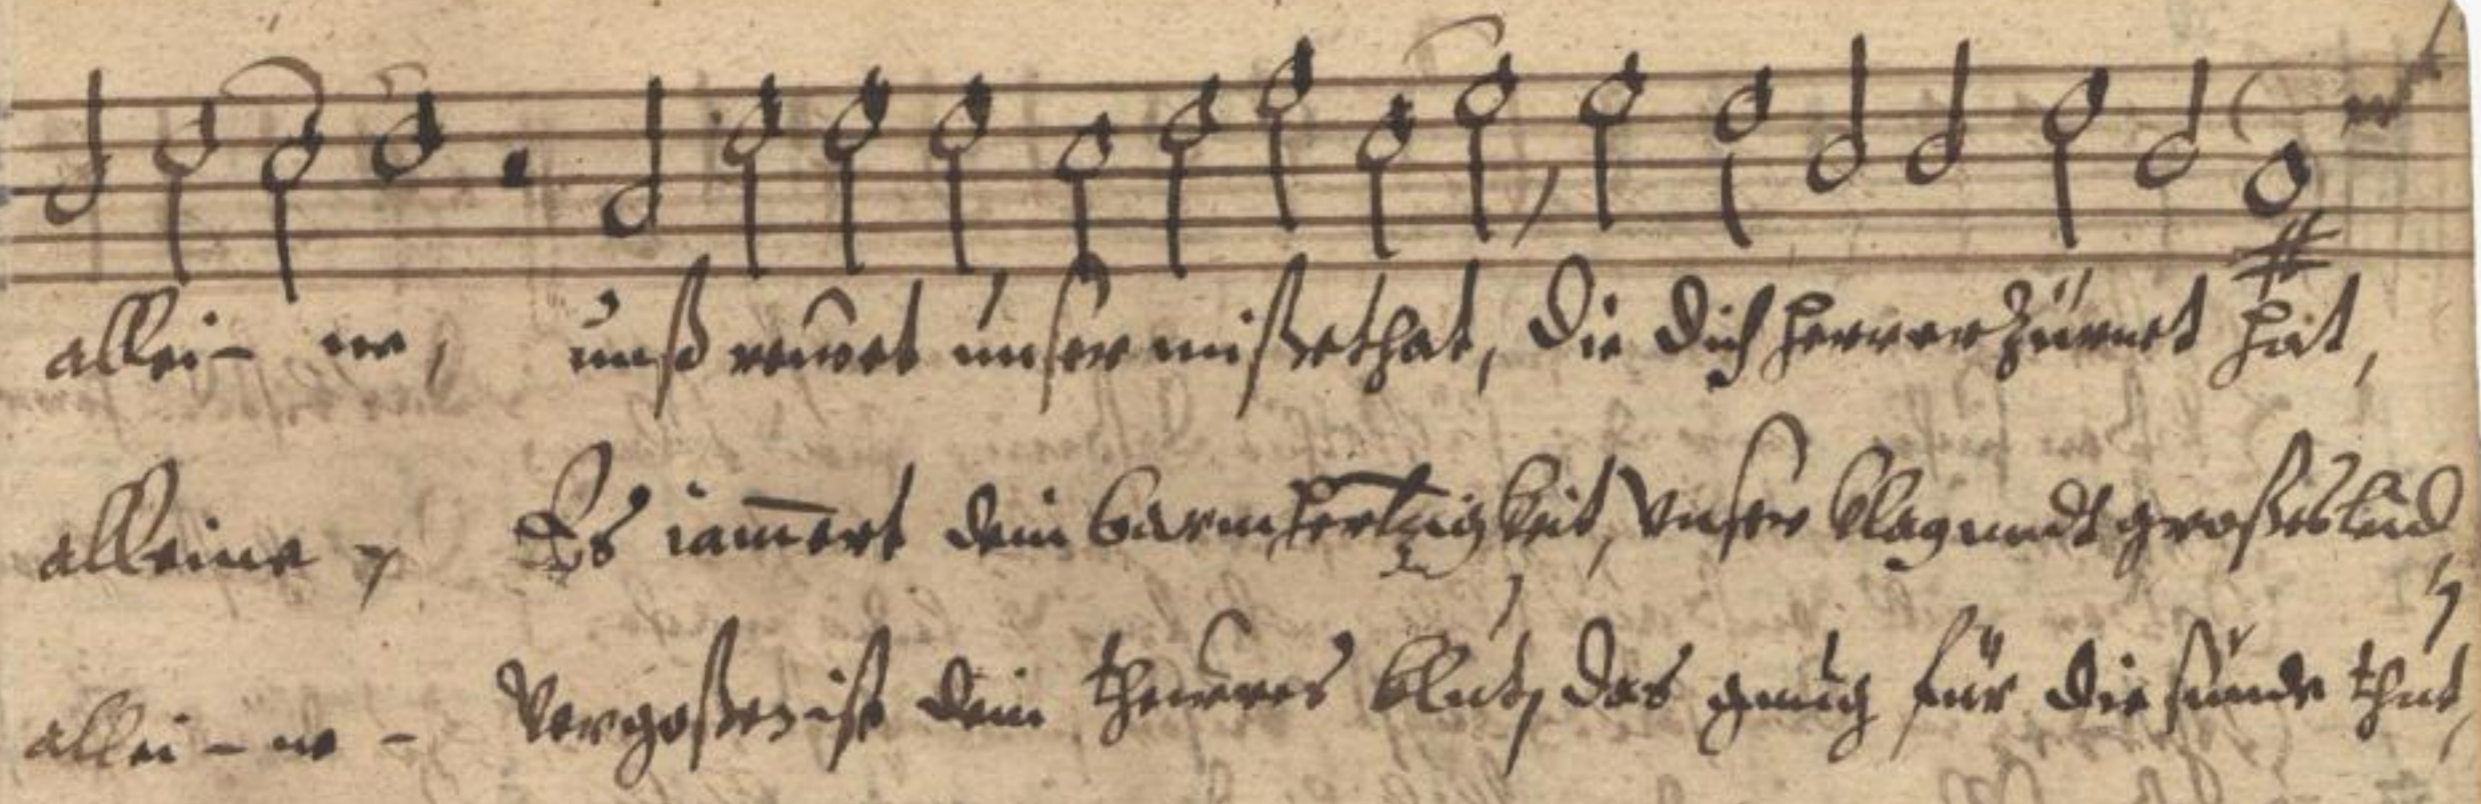 allei- ne, unß rewet unser mißethat, die dich Herr erzürnet hat,
alleine Es iam̅ert dein barmhertzigkeit, Vnser klag undt großes leid
allei- ne - Vergoßen ist dein theures blut, das genug für die sünde thut,